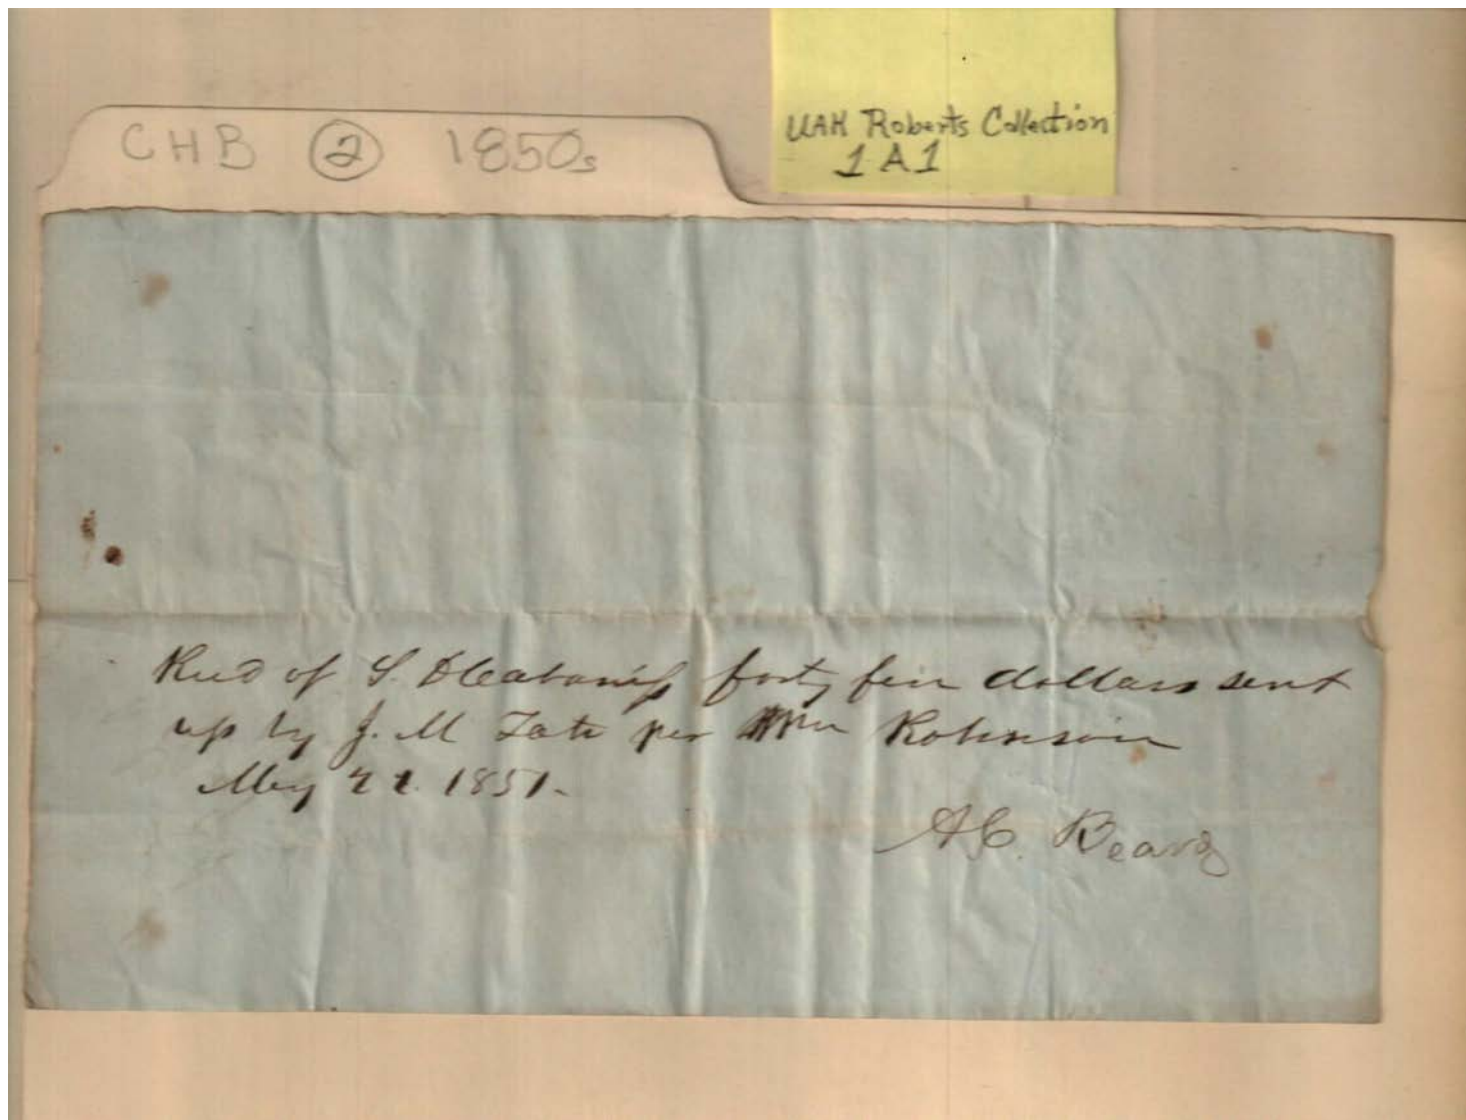 CHB ② 1850s
UAH Roberts Collection
1 A 1
Recd of S. D Cabaniss forty five dollars sent
up by J. M Tate per Wm Robinson
May 1851.
A C. Beard